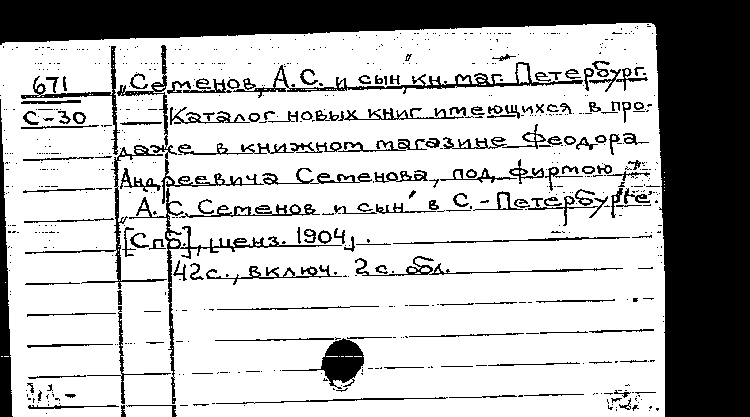 671 „Семенов, А.С. и сын", кн. маг. Петербург.
С-30 Каталог новых книг имеющихся в про-
даже в книжном магазине Феодора
Андреевича Семенова, под фирмою
„А. С. Семенов и сын" в С.-Петербурге.
[Спб.], [ценз. 1904].
42 с., включ. 2 с. обл.